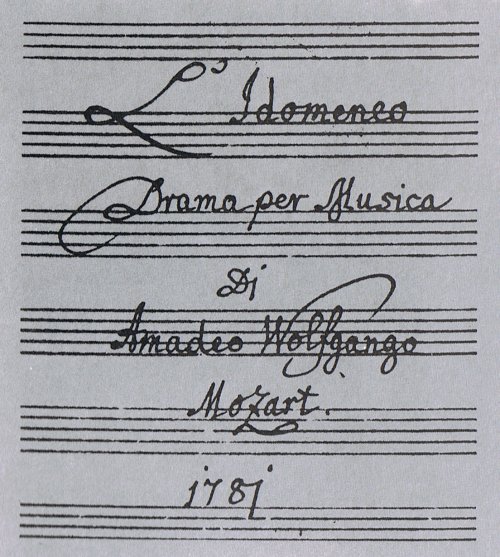 L'Idomeneo
Drama per Musica
Di
Amadeo Wolfgango
Mozart.
1781